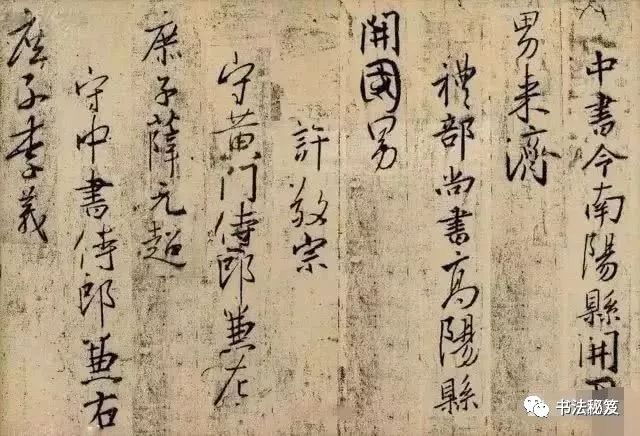 中書令南陽縣開
男来濟
禮部尚書高陽縣
開國男
許敬宗
守黄门侍郎兼左
庶子薛元超
守中書侍郎兼右
庶子李義
书法秘笈